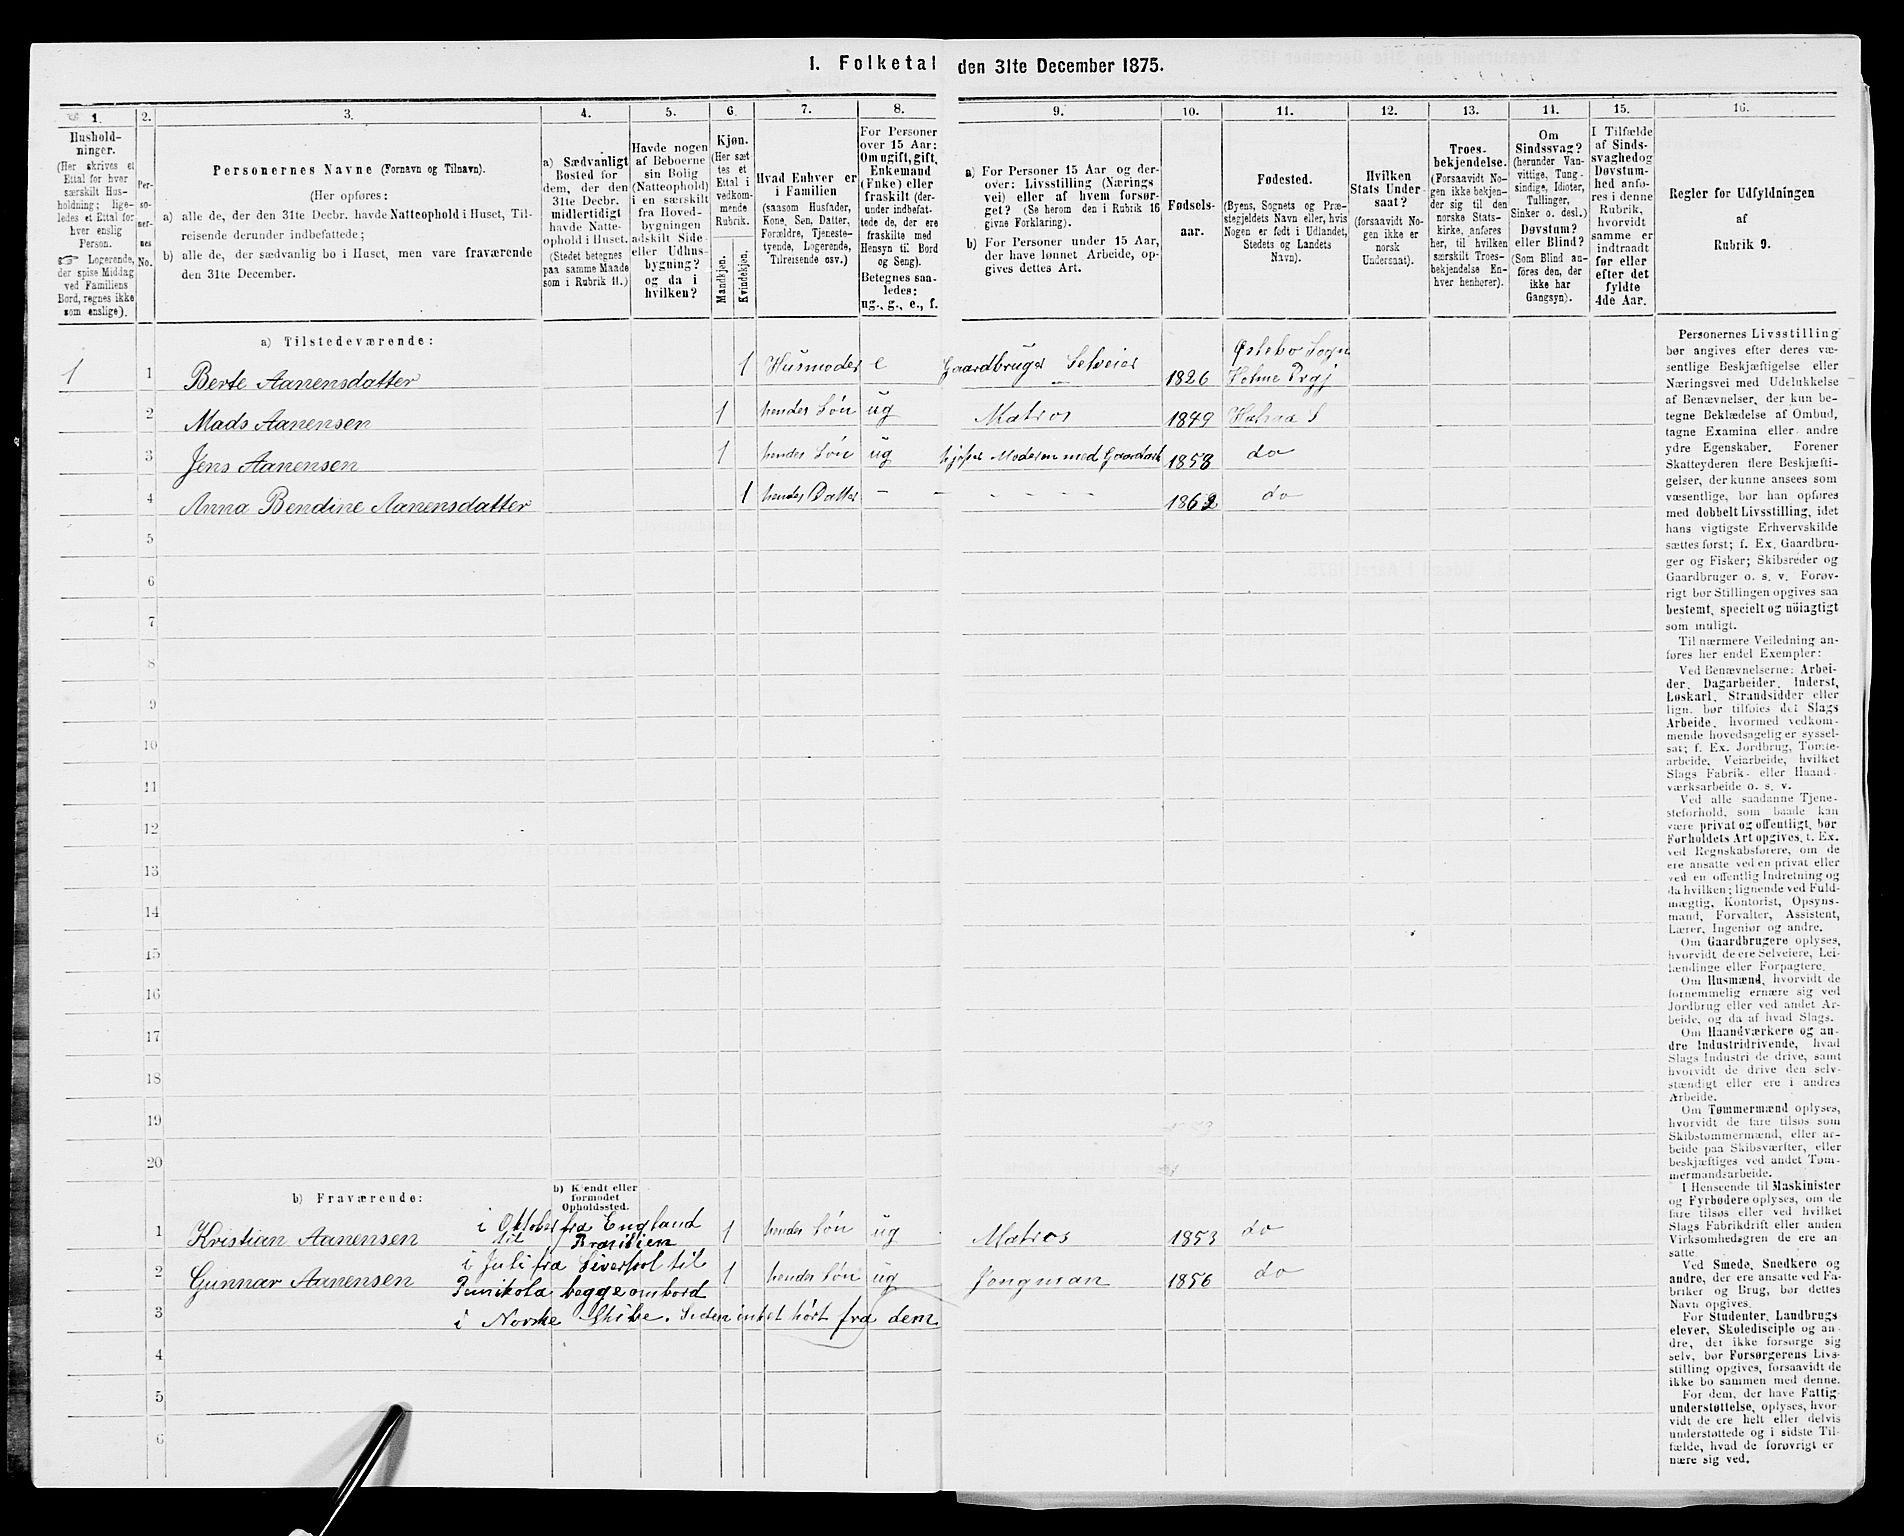 1. Folketal den 31te December 1875.
1. 2. 3. 4. 5. 6. 7. 8. 9. 10. 11. 12. 13. 14. 15. 16.
Hushold-
ninger.
(Her skrives et
Ettal for hver
særskilt Hus-
holdning; lige-
ledes et Ettal for
hver enslig
Person.
☞ Logerende,
der spise Middag
ved Familiens
Bord, regnes ikke
som enslige).
Per-
so-
ner-
nes
No.
Personernes Navne (Fornavn og Tilnavn).
(Her opføres:
a) alle de, der den 31te Decbr. havde Natteophold i Huset, Til-
reisende derunder indbefattede;
b) alle de, der sædvanlig bo i Huset, men vare fraværende
den 31te December.
a) Sædvanligt
Bosted for
dem, der den
31te Decbr.
midlertidigt
havde Natte-
ophold i Huset.
(Stedet betegnes
paa samme Maade
som i Rubrik 11.)
Havde nogen
af Beboerne
sin Bolig
(Natteophold)
i en særskilt
fra Hoved-
bygningen
adskilt Side-
eller Udhus-
bygning?
og da i
hvilken?
Kjøn.
(Her sæt-
tes et
Ettal i
vedkom-
mende
Rubrik.
Mandkjøn.
Kvindekjøn.
Hvad Enhver er
i Familien
(saasom Husfader,
Kone, Søn, Datter,
Forældre, Tjeneste-
tyende, Logerende,
Tilreisende osv.)
For Personer
over 15 Aar:
Om ugift, gift,
Enkemand
(Enke) eller
fraskilt (der-
under indbefat-
tede de, der ere
fraskilte med
Hensyn til Bord
og Seng).
Betegnes saa-
ledes:
ug., g., e., f.
a) For Personer 15 Aar og der-
over: Livsstilling (Nærings-
vei) eller af hvem forsør-
get? (Se herom den i Rubrik 16
givne Forklaring).
b) For Personer under 15 Aar,
der have lønnet Arbeide, op-
gives dettes Art.
Fødsels-
aar.
Fødested.
(Byens, Sognets og Præ-
stegjeldets Navn eller, hvis
Nogen er født i Udlandet,
Stedets og Landets
Navn).
Hvilken
Stats Under-
saat?
(forsaavidt No-
gen ikke er
norsk
Undersaat).
Troes-
bekjendelse.
(Forsaavidt No-
gen ikke bekjen-
der sig til den
norske Stats-
kirke, anføres
her, til hvilken
særskilt Troes-
bekjendelse En-
hver henhører).
Om
Sindssvag?
(herunder Van-
vittige, Tung-
sindige, Idioter,
Tullinger,
Sinker o. desl.)
Døvstum?
eller Blind?
(Som Blind an-
føres den, der
ikke har
Gangsyn).
I Tilfælde
af Sinds-
svaghed og
Døvstum-
hed anfø-
res i denne
Rubrik,
hvorvidt
samme er
indtraadt
før eller
efter det
fyldte
4de Aar.
Regler for Udfyldningen
af
Rubrik 9.
a) Tilstedeværende:
1 1 Berte Aanensdatter 1 Husmoder e Gaardbruger Selveier 1826 Østebø Sogn
Holme Prgj
2 Mads Aanensen 1 hendes Søn ug Matros 1849 S
3 Jens Aanensen 1 hendes Søn ug Moderen med 1858 do
4 Anna Bendine Aanensdatter 1 hendes Datter - - - - - - 1862 do
5
6
7
8
9
10
11
12
13
14
15
16
17
18
19
20
b) Fraværende:
b) Kjendt eller
formodet
Opholdssted.
1 Kristian Aanensen i Oktober fra England
til Brasilien 1 hendes Søn ug Matros 1853 do
2 Gunnar Aanensen i Juli fra Liverpool til
begge ombord 1 hendes Søn ug Jongman 1856 do
3 i Norske Skibe. Siden intet hørt fra dem
4
5
6
Personernes Livsstilling
bør angives efter deres væ-
sentlige Beskjæftigelse eller
Næringsvei med Udelukkelse
af Benævnelser, der kun be-
tegne Beklædelse af Ombud,
tagne Examina eller andre
ydre Egenskaber. Forener
Skatteyderen flere Beskjæfti-
gelser, der kunne ansees som
væsentlige, bør han opføres
med dobbelt Livsstilling, idet
hans vigtigste Erhvervskilde
sættes først; f. Ex. Gaardbru-
ger og Fisker; Skibsreder og
Gaardbruger o. s. v. Forøv-
rigt bør Stillingen opgives saa
bestemt, specielt og nöiagtigt
som muligt.
Til nærmere Veiledning an-
føres her endel Exempler:
Ved Benævnelserne: Arbei-
der, Dagarbeider, Inderst,
Løskarl, Strandsidder eller
lign. bør tilføies det Slags
Arbeide, hvormed vedkom-
mende hovedsagelig er syssel-
sat; f. Ex. Jordbrug, Tomte-
arbeide, Veiarbeide, hvilket
Slags Fabrik- eller Haand-
værksarbeide o. s. v.
Ved alle saadanne Tjene-
steforhold, som baade kan
være privat og offentligt, bør
Forholdets Art opgives, t. Ex.
ved Regnskabsførere, om de
ere ansatte ved en privat eller
ved en offentlig Indretning og
da hvilken; lignende ved Fuld-
mægtig, Kontorist, Opsyns-
mand, Forvalter, Assistent,
Lærer, Ingeniør og andre.
Om Gaardbrugere oplyses,
hvorvidt de ere Selveiere, Lei-
lændinge eller Forpagtere.
Om Husmænd, hvorvidt de
fornemmelig ernære sig ved
Jordbrug eller ved andet Ar-
beide, og da af hvad Slags.
Om Haandværkere og an-
dre Industridrivende, hvad
Slags Industri de drive, samt
hvorvidt de drive den selv-
stændigt eller ere i andres
Arbeide.
Om Tømmermænd oplyses,
hvorvidt de fare tilsøs som
Skibstømmermænd, eller ar-
beide paa Skibsværfter, eller
beskjæftiges ved andet Tøm-
mermandsarbeide.
I Henseende til Maskinister
og Fyrbødere oplyses, om de
fare tilsøs eller ved hvilket
Slags Fabrikdrift eller anden
Virksomhedsgren de ere an-
satte.
Ved Smede, Snedkere og
andre, der ere ansatte ved Fa-
briker og Brug, bør dettes
Navn opgives.
For Studenter, Landbrugs-
elever, Skoledisciple og an-
dre, der ikke forsørge sig
selv, bør Forsørgerens Livs-
stilling opgives, forsaavidt de
ikke bo sammen med denne.
For dem, der have Fattig-
understøttelse, oplyses, hvor-
vidt de ere helt eller delvis
understøttede og i sidste Til-
fælde, hvad de forøvrigt er-
nære sig ved.